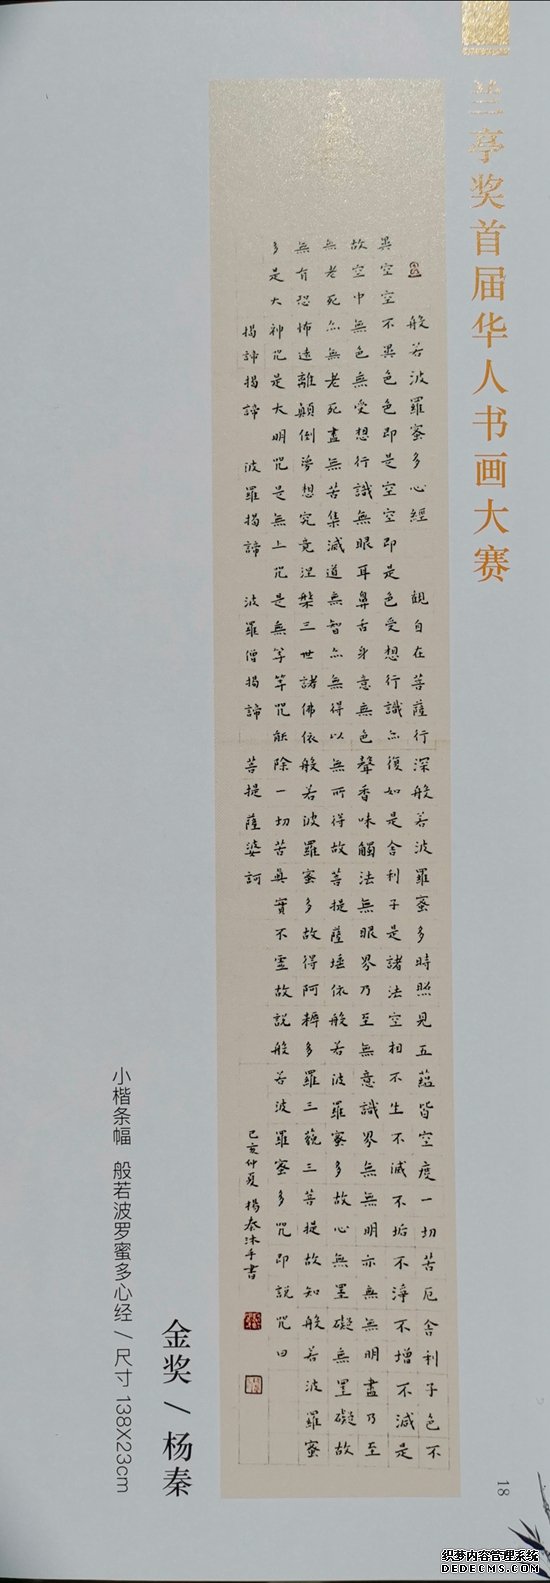 兰亭奖首届华人书画大赛
般若波羅蜜多心經 觀自在菩薩行深般若波羅蜜多時照見五蘊皆空度一切苦厄舍利子色不
異空空不異色色即是空空即是色受想行識亦復如是舍利子是諸法空相不生不滅不垢不淨不增不減是
故空中無色無受想行識無眼耳鼻舌身意無色聲香味觸法無眼界乃至無意識界無無明亦無無明盡乃至
無老死亦無老死盡無苦集滅道無智亦無得以無所得故菩提薩埵依般若波羅蜜多故心無罣礙無罣礙故
無有恐怖遠離顛倒夢想究竟涅槃三世諸佛依般若波羅蜜多故得阿耨多羅三藐三菩提故知般若波羅蜜
多是大神咒是大明咒是無上咒是無等等咒能除一切苦真實不虛故説般若波羅蜜多咒即説咒曰
揭諦揭諦 波羅揭諦 波羅僧揭諦 菩提薩婆訶
己亥仲夏 楊秦沐手書
金奖 / 杨秦
小楷条幅 般若波罗蜜多心经 / 尺寸 138X23cm
18
织梦内容管理系统
DEDECMS.COM